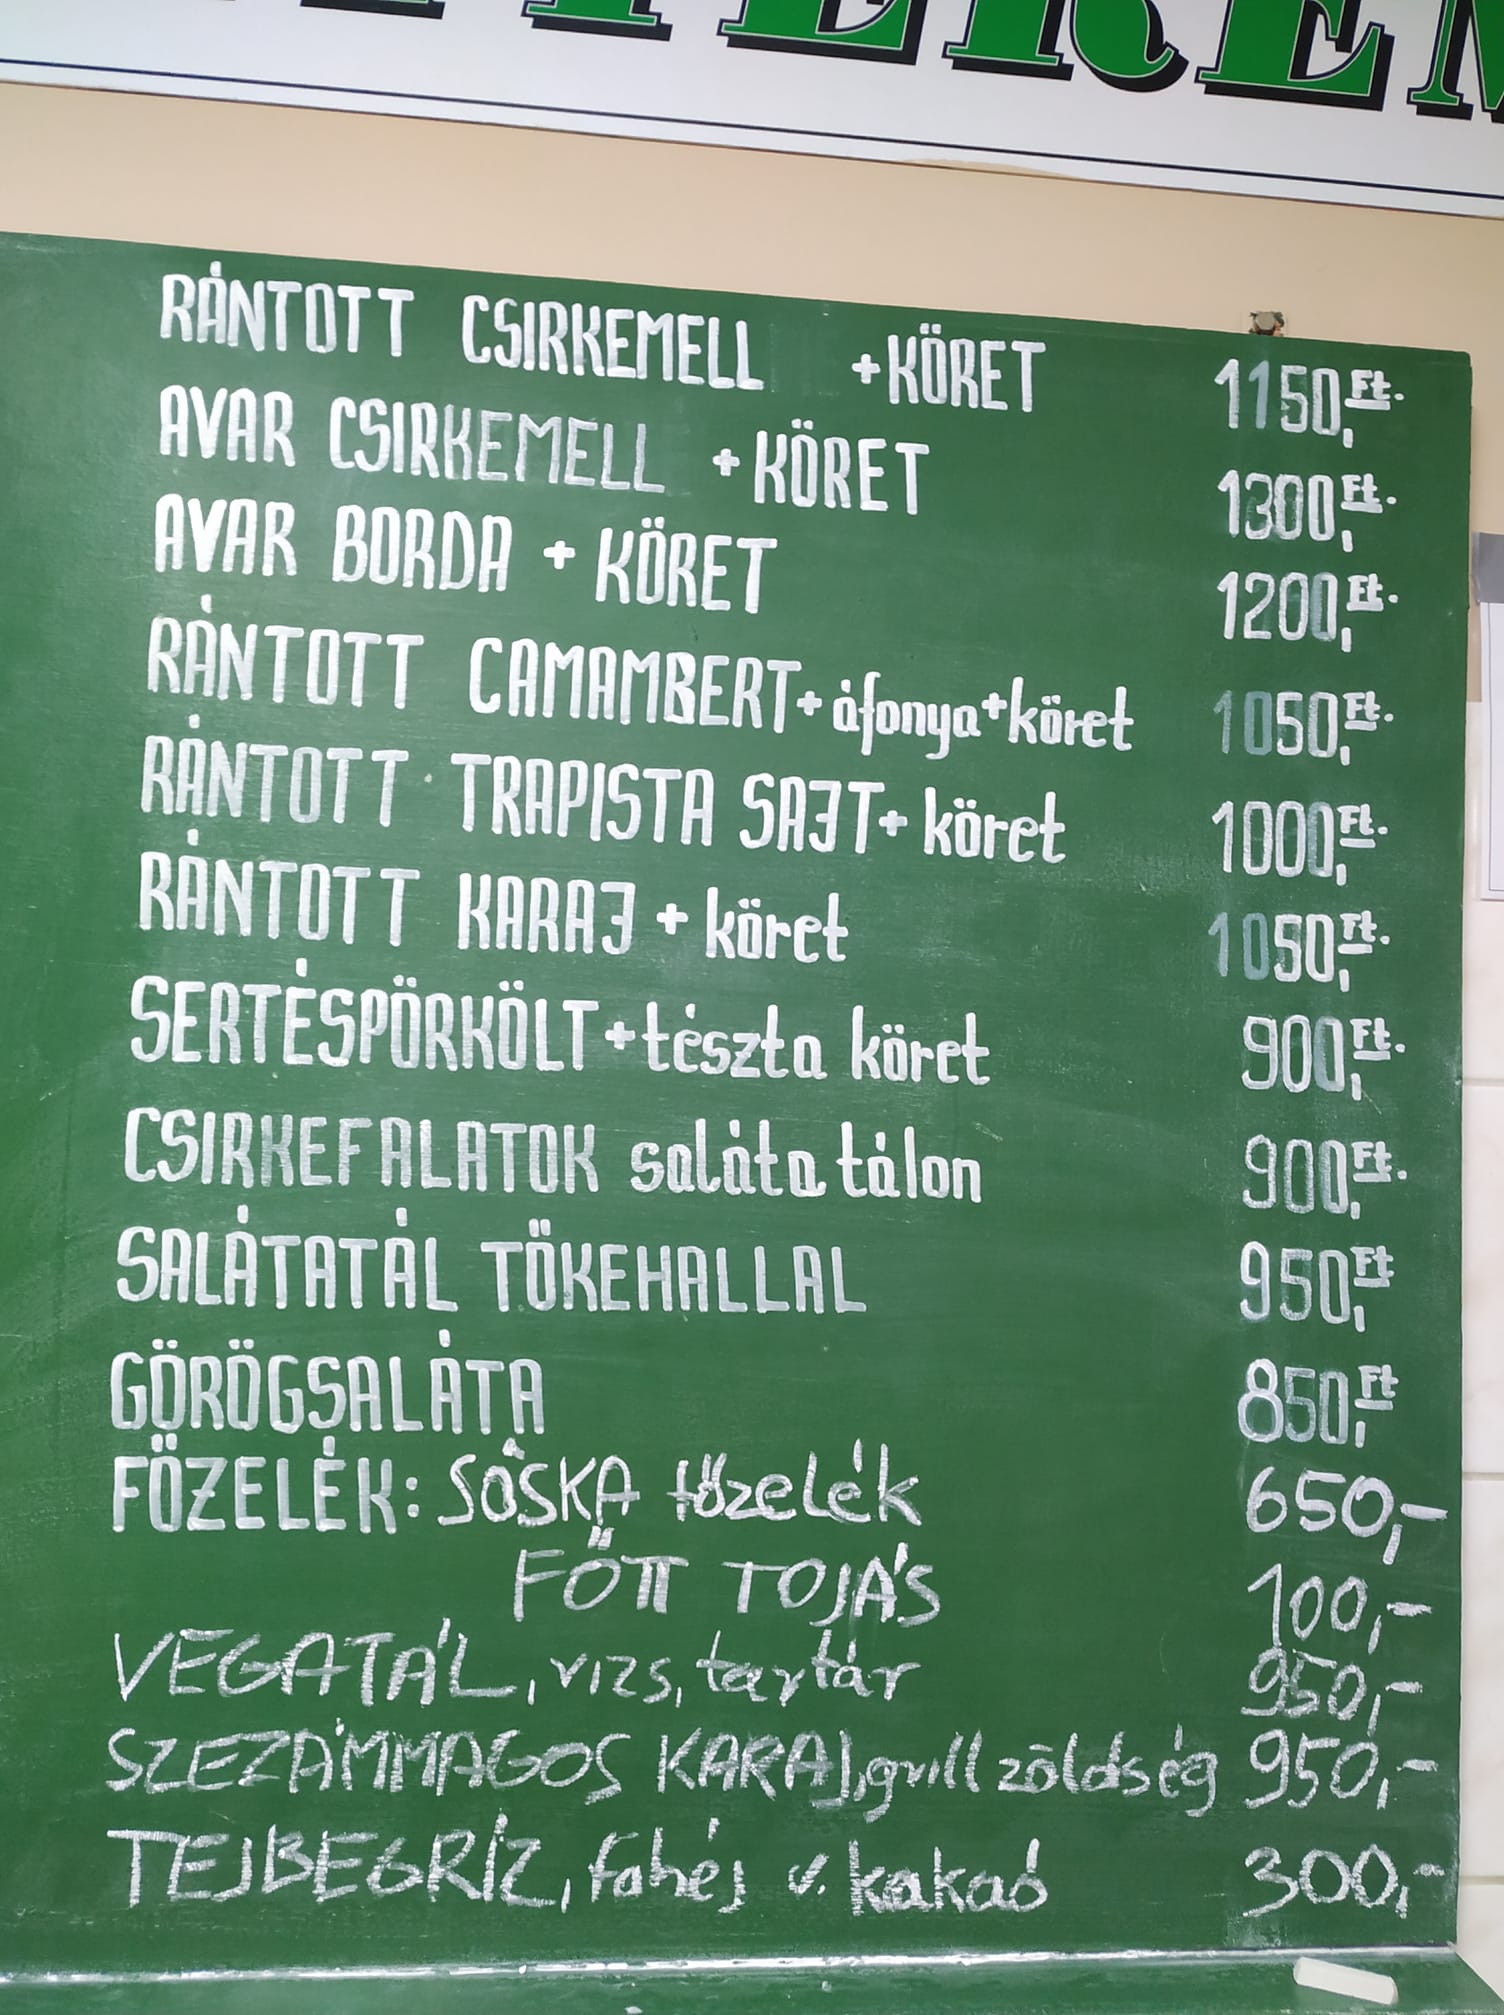 RÁNTOTT CSIRKEMELL +KÖRET 1150,Ft.
AVAR CSIRKEMELL +KÖRET 1300,Ft.
AVAR BORDA + KÖRET 1200,Ft.
RÁNTOTT CAMAMBERT+áfonya+köret 1050,Ft.
RÁNTOTT TRAPISTA SAJT+ köret 1000,Ft.
RÁNTOTT KARAJ + köret 1050,Ft.
SERTÉSPÖRKÖLT+tészta köret 900,Ft.
CSIRKEFALATOK saláta tálon 900,Ft.
SALÁTATÁL TŐKEHALLAL 950,Ft
GÖRÖGSALÁTA 850,Ft
FŐZELÉK: SÓSKA főzelék 650,-
FŐTT TOJÁS 100,-
VEGATÁL, rizs, tartár 950,-
SZEZÁMMAGOS KARAJ, grill zöldség 950,-
TEJBEGRÍZ, fahéj v. kakaó 300,-